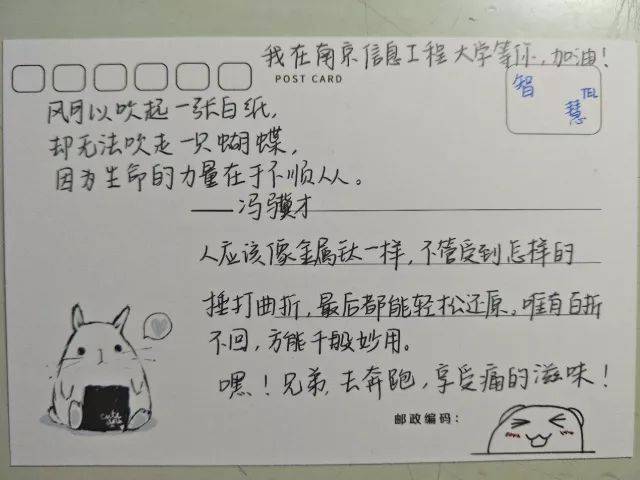 我在南京信息工程大学等你,加油!
POST CARD
智
TEL
慧
风可以吹起一张白纸,
却无法吹走一只蝴蝶,
因为生命的力量在于不顺从。
——冯骥才
人应该像金属钛一样,不管受到怎样的
捶打曲折,最后都能轻松还原。唯有百折
不回,方能千般妙用。
嘿!兄弟,去奔跑,享受痛的滋味!
邮政编码: